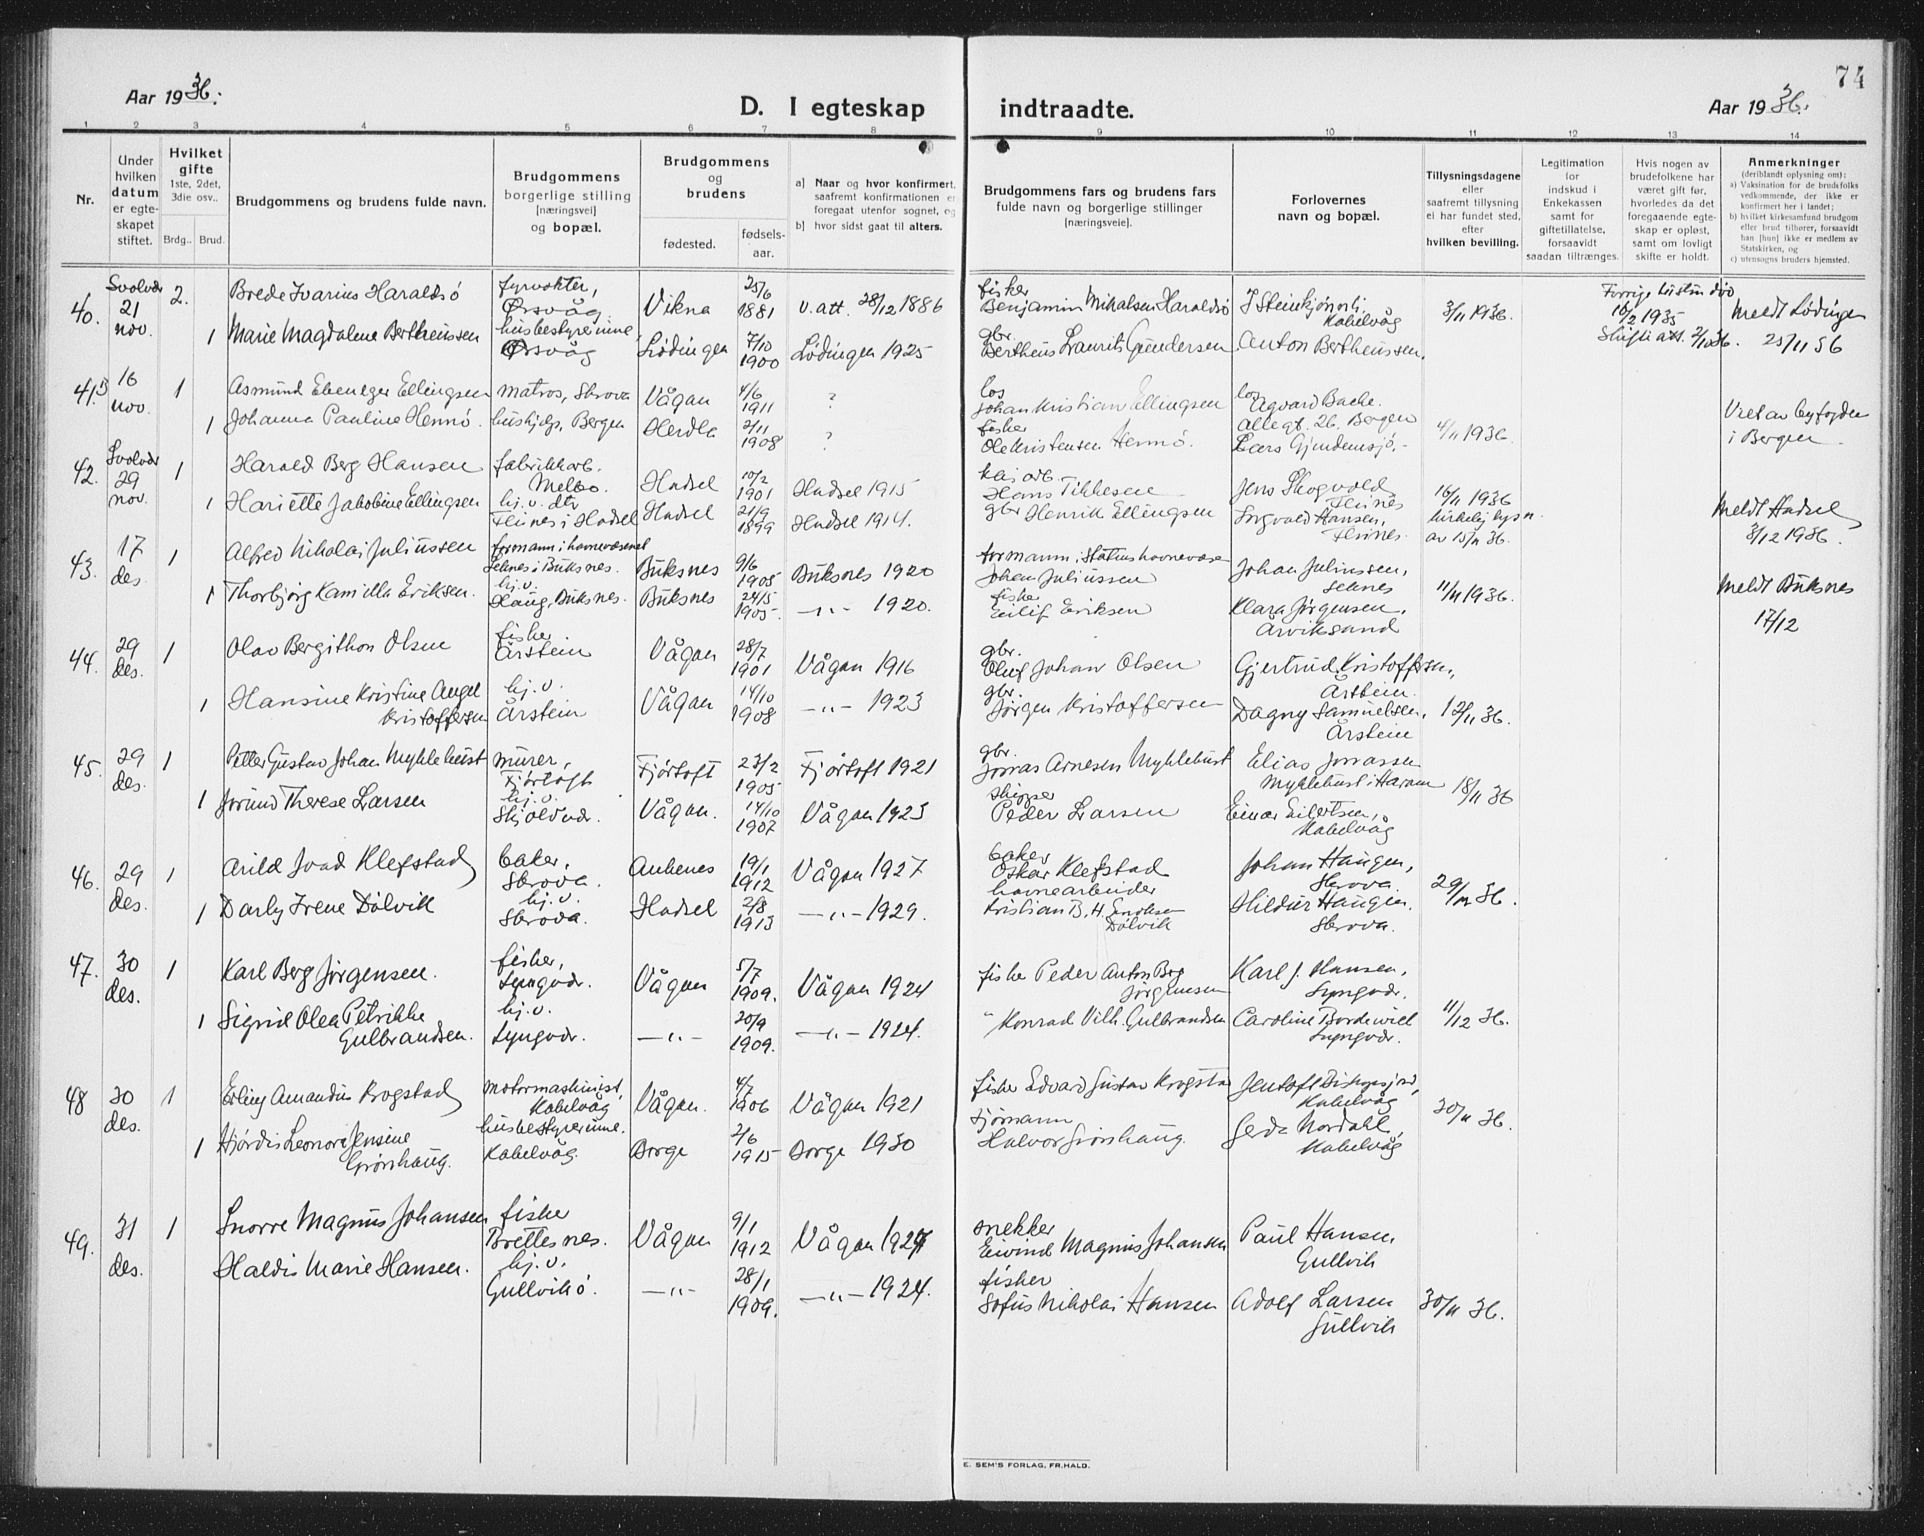 74
Aar 1936.
D. I egteskap indtraadte.
Aar 1936.
1 2 3 4 5 6 7 8 9 10 11 12 13 14
Nr.
Under hvilken datum er egteskapet stiftet.
Hvilket gifte 1ste, 2det, 3die osv..
Brdg.. Brud.
Brudgommens og brudens fulde navn.
Brudgommens borgerlige stilling [næringsvei] og bopæl.
Brudgommens og brudens
fødested.
fødselsaar.
a) Naar og hvor konfirmert, saafremt konfirmationen er foregaat utenfor sognet, og
b) hvor sidst gaat til alters.
Brudgommens fars og brudens fars fulde navn og borgerlige stillinger [næringsveie].
Forlovernes navn og bopæl.
Tillysningsdagene eller saafremt tillysning ei har fundet sted, efter hvilken bevilling.
Legitimation for indskud i Enkekassen samt for giftetillatelse, forsaavidt saadan tiltrænges.
Hvis nogen av brudefolkene har været gift før, hvorledes da det foregaaende egteskap er opløst, samt om lovligt skifte er holdt.
Anmerkninger (deriblandt oplysning om):
a) Vaksination for de brudsfolks vedkommende, der ikke er konfirmert her i landet;
b) hvilket kirkesamfund brudgom eller brud tilhører, forsaavidt han [hun] ikke er medlem av Statskirken, og
c) utensogns bruders hjemsted.
40. Svolvær 21 nov. 2. Brede Ivarius Haraldsø fyrvokter, Ørsvåg Vikna 25/6 1881 v. att. 28/12 1886 fisker Benjamin Mikalsen Haraldsø Kabelvåg 3/11 1936. Forrige hustru død 16/2 1935 Skifteatt. Meldt Lødingen
1 Marie Magdalene Bertheussen husbestyrerinne, Ørsvåg Lødingen 7/10 1900 Lødingen 1925 gbr. Bertheus Laurits Gundersen Anton Bertheussen. 25/11 36
41. 16 nov. 1 Asmund Ebenezer Ellingsen matros, Skrova Vågan 4/6 1911 ? los Johan Kristian Ellingsen los Agvard Bache. Allegt. 26, Bergen Viet av byfogden
1 Johanna Pauline Hennø. hushjelp, Bergen Herdla 2/11 1908 ? fisker Ole Kristensen Hennø. Lars Gjendemsjø. 4/11 1936. i Bergen
42. Svolvær 29 nov. 1 Harald Berg Hansen fabrikkarb. Melbo. Hadsel 10/2 1901 Hadsel 1915 kaiarb. Hans Tikkesen Jens Skogvold Flesnes 16/11 1936 Meldt Hadsel
1 Hariette Jakobine Ellingsen hj. v. dtr Hadsel 21/9 1899 Hadsel 1914. gbr Henrik Ellingsen Hansen, kirkelig lysn. av 15/11 36. 3/12 1936.
43. 17 des. 1 Alfred Nikolai Juliussen formann i havnevæsenet Selnes i Buksnes. Buksnes 9/6 1905 Buksnes 1920 formann i Statens havnevæsen Johan Juliussen Johan Juliussen, Selnes 11/11 1936. Meldt Buksnes
1 Thorbjørg Kamilla Eriksen. hj. v. Haug, Buksnes. Buksnes 24/5 1905. -"- 1920. fisker Eilif Eriksen Klara Jørgensen, Årviksand 17/12
44. 29 des. 1 Olav Bergithon Olsen fisker Årstein Vågan 28/7 1901 Vågan 1916 gbr. Oluf Johan Olsen Gjertrud Kristoffersen, Årstein.
1 Hansine Kristine Angel Kristoffersen hj. v. Årstein Vågan 14/10 1908 -"- 1923 gbr. Jørgen Kristoffersen Dagny Samuelsen, Årstein 12/11 36.
45. 29 des. 1 Petter Gustav Johan Myklebust murer, Fjørtoft Fjørtoft 23/2 1905 Fjørtoft 1921 gbr. Jonas Arnesen Myklebust Elias Jonassen Myklebust i Haram 18/11 36
1 Jorund Therese Larsen hj. v. Skjoldvær. Vågan. 14/10 1907 Vågan 1923 skipper Peder Larsen Einar Eilertsen, Kabelvåg
46. 29 des. 1 Arild Joad Klefstad baker, Skrova. Ankenes 19/1 1912 Vågan 1927 baker Oskar Klefstad Johan Haugen, Skrova. 36.
1 Darly Irene Dølvik hj. v. Skrova. Hadsel 2/8 1913 -"- 1929. havnearbeider Kristian B. H. Enoksen Dølvik Hildur Haugen. Skrova.
47. 30 des. 1 Karl Berg Jørgensen. fisker, Lyngvær. Vågan 5/7 1909. Vågan 1924 fisker Peder Anton Berg Jørgensen Karl J. Hansen, Lyngvær.
1 Sigrid Olea Petrikke Gulbrandsen. hj. v. Lyngvær. -"- 20/9 1909. -"- 1924. " Konrad Vilh. Gulbrandsen Caroline Bordewick Lyngvær. 11/12 36.
48 30 des. 1 Erling Amandus Krogstad motormaskinist, Kabelvåg Vågan. 4/7 1906 Vågan 1921 fisker Edvard Gustav Krogstad Jentoft Kabelvåg 30/11 36.
1 Hjørdis Leonore Jensine Grønhaug. husbestyrerinne. Kabelvåg. Borge 2/6 1915 Borge 1930 Halvor Grønhaug. Gerda Nordahl, Kabelvåg
49. 31 des. 1 Snorre Magnus Johansen fisker Brettesnes. Vågan 9/1 1912 Vågan 1927 snekker Eivind Magnus Johansen Paul Hansen, Gullvik
Haldis Marie Hansen. hj. v. Gullvikø. -"- 28/1 1909. -"- 1924. fisker Sofus Nikolai Hansen Adolf Larsen Gullvik 30/11 36.
E. SEM'S FORLAG, FR.HALD.